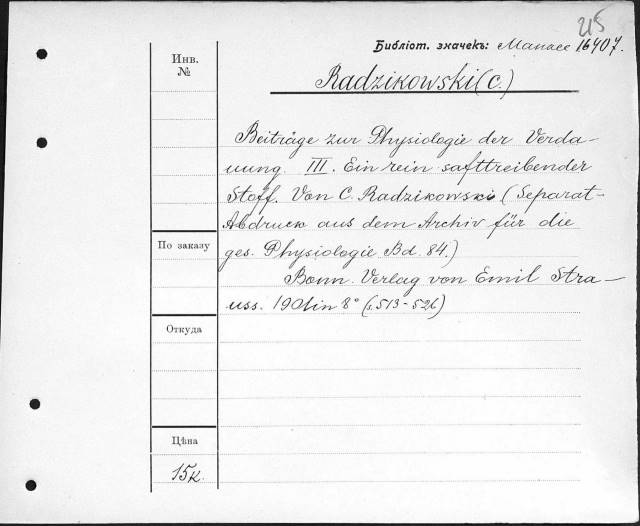 215
Библіот. значекъ: Манасс 16407.
Инв.
№
Radzikowski (C.)
Beiträge zur Physiologie der Verda-
uung. III. Ein rein safttreibender
Stoff. Von C. Radzikowski (Separat-
Abdruck aus dem Archiv für die
По заказу
ges. Physiologie Bd. 84.)
Bonn. Verlag von Emil Stra-
uss. 1901 in 8° (s. 513-526)
Откуда
Цѣна
15к.